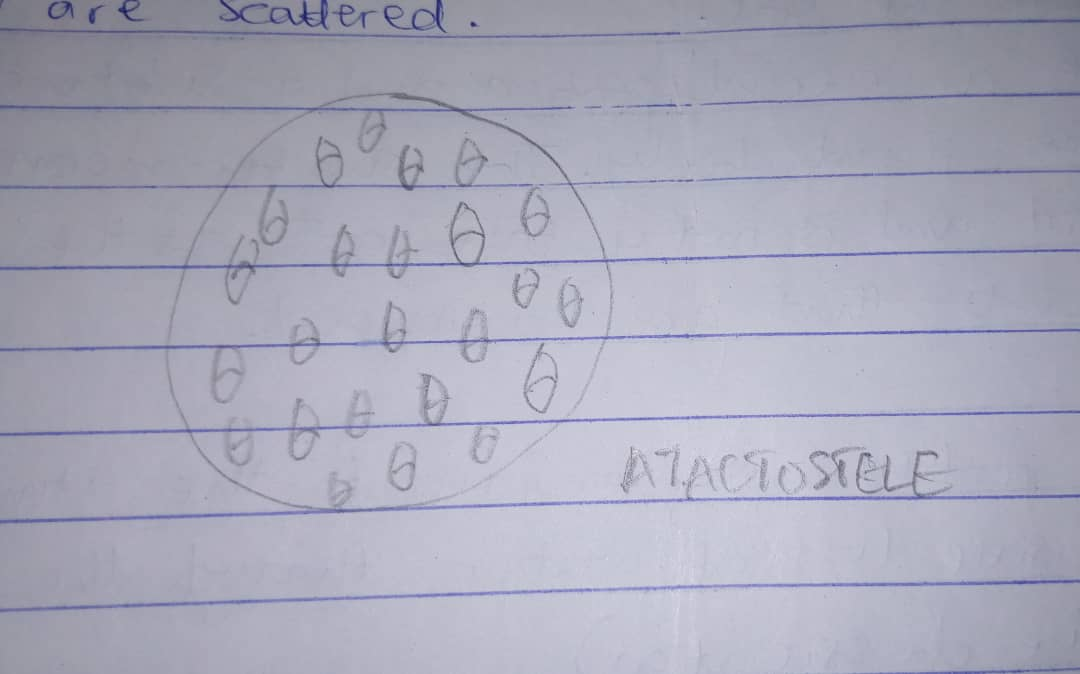 are scattered.
ATACTOSTELE